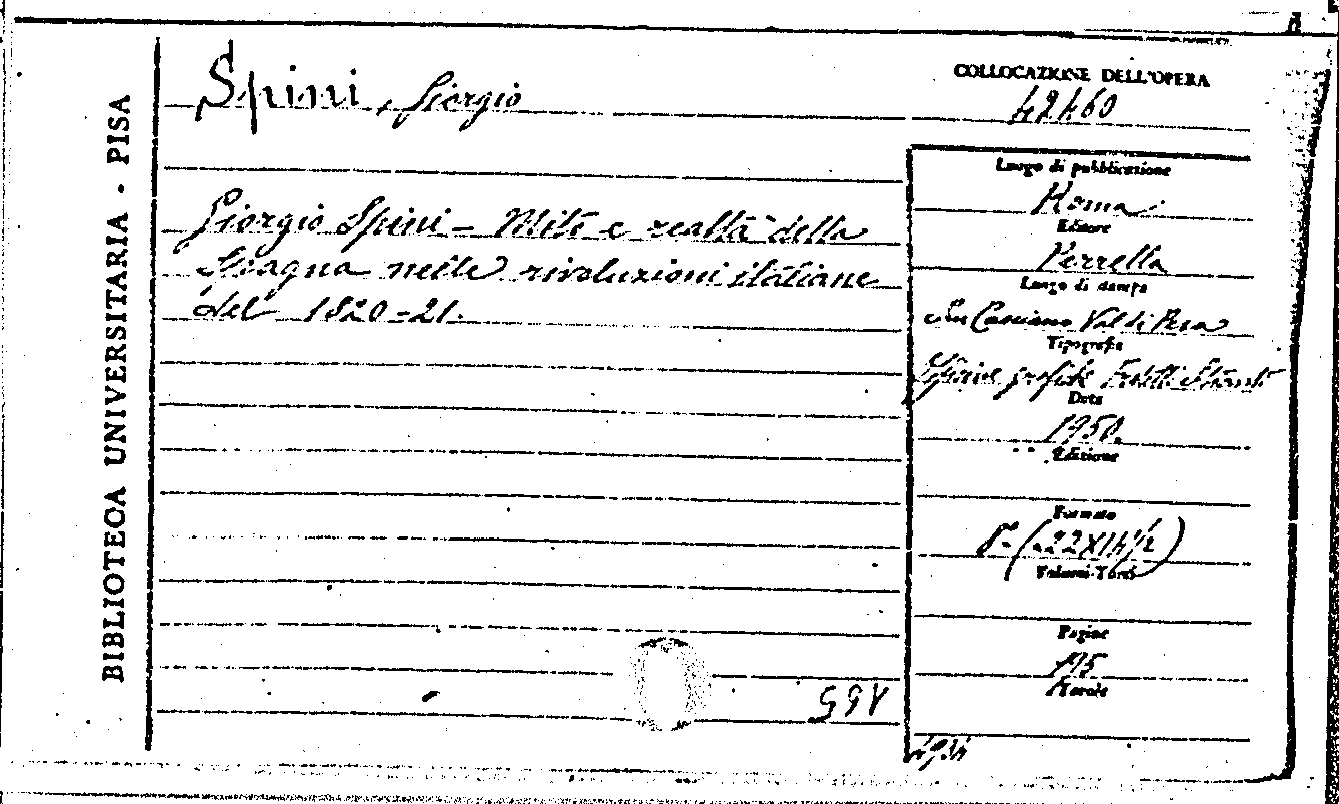 BIBLIOTECA UNIVERSITARIA - PISA
Spini, Giorgio
Giorgio Spini - Mito e realtà della
Spagna nelle rivoluzioni italiane
del 1820-21.
COLLOCAZIONE DELL'OPERA
42460
Luogo di pubblicazione
Roma
Editore
Perrella
Luogo di stampa
San Casciano Val di Pesa
Tipografia
Officine grafiche Fratelli Stianti
Data
1950.
Edizione
Formato
8º (22X14½)
Volumi-Tomi
Pagine
195
Tavole